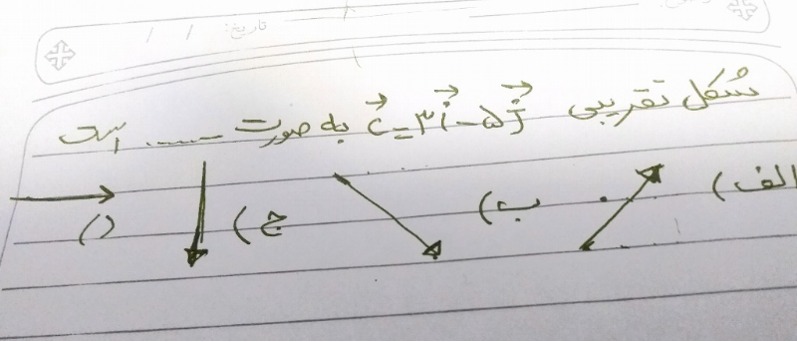 تاریخ: / /
شکل تقریبی c⃗ = ۳i⃗ - ۵j⃗ به صورت ...... است
الف) ب) ج) د)